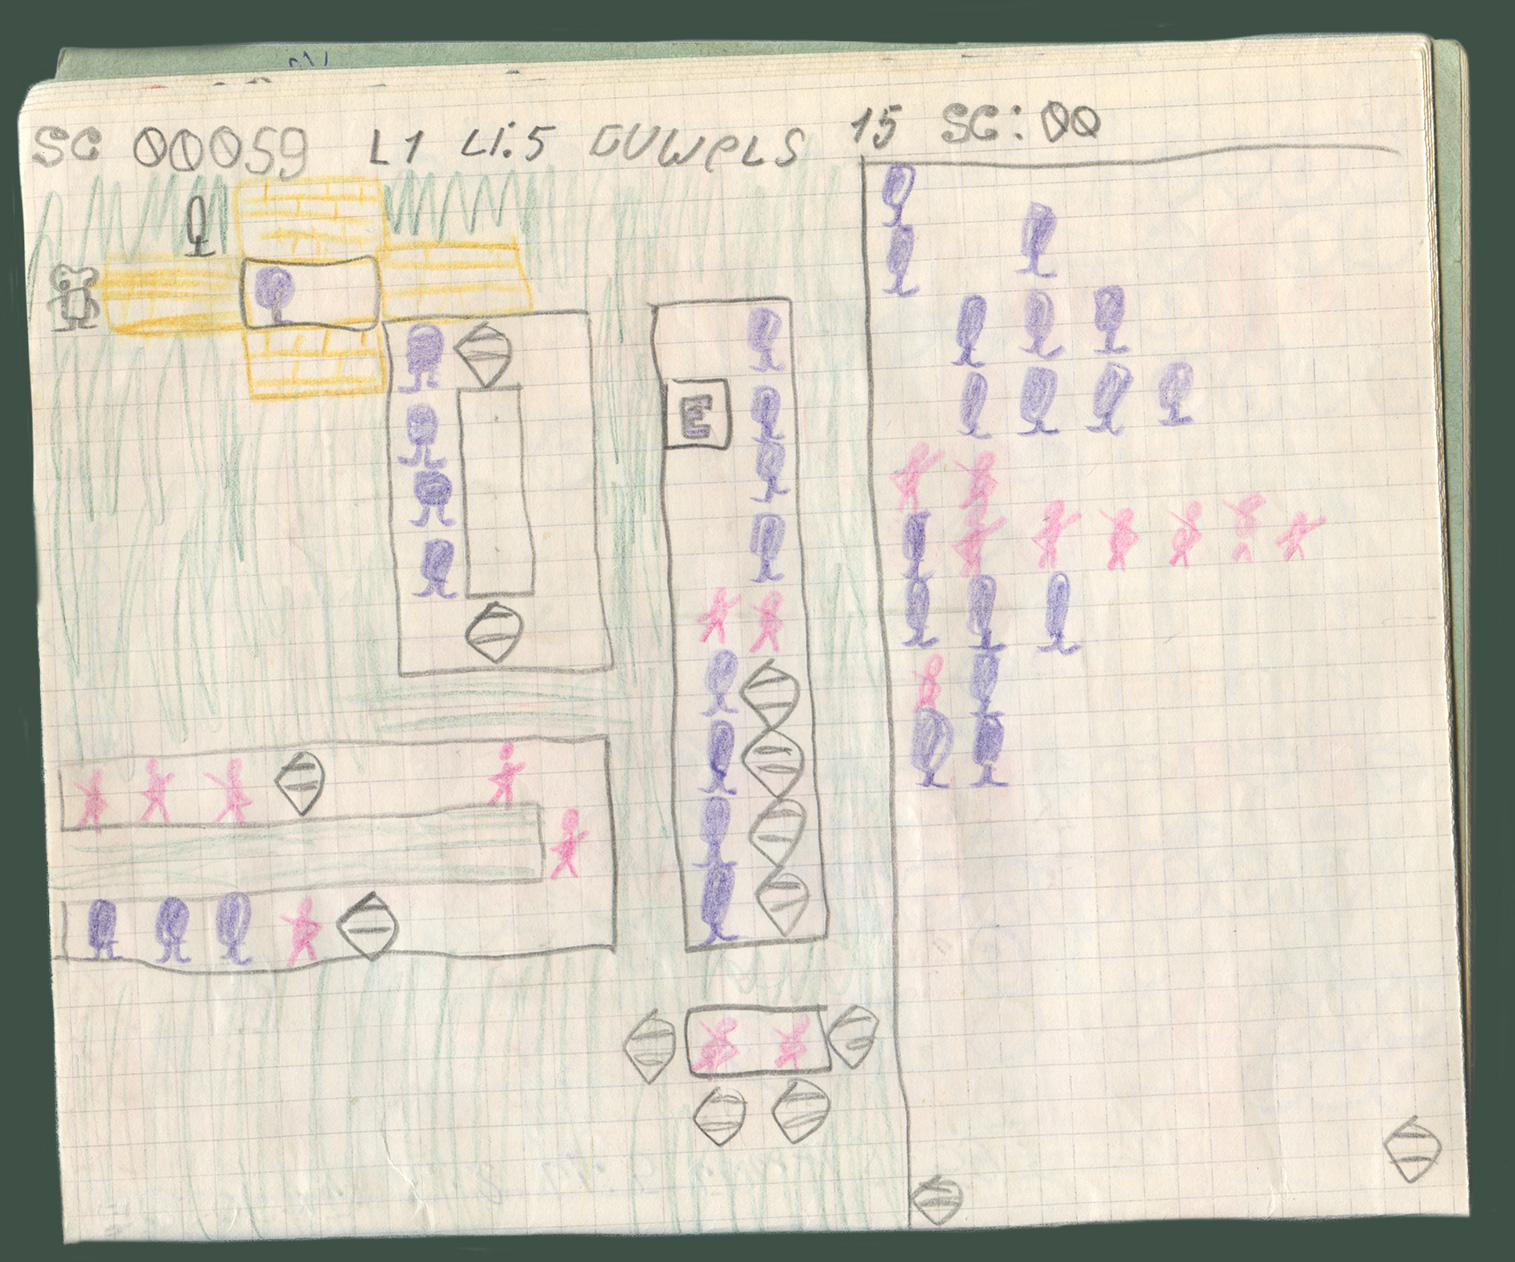 SC 00059 L1 Li.5 GUWELS 15 SC:00
E